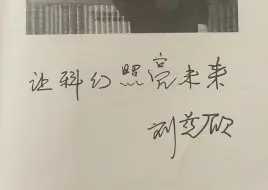 让科幻照亮未来
刘慈欣